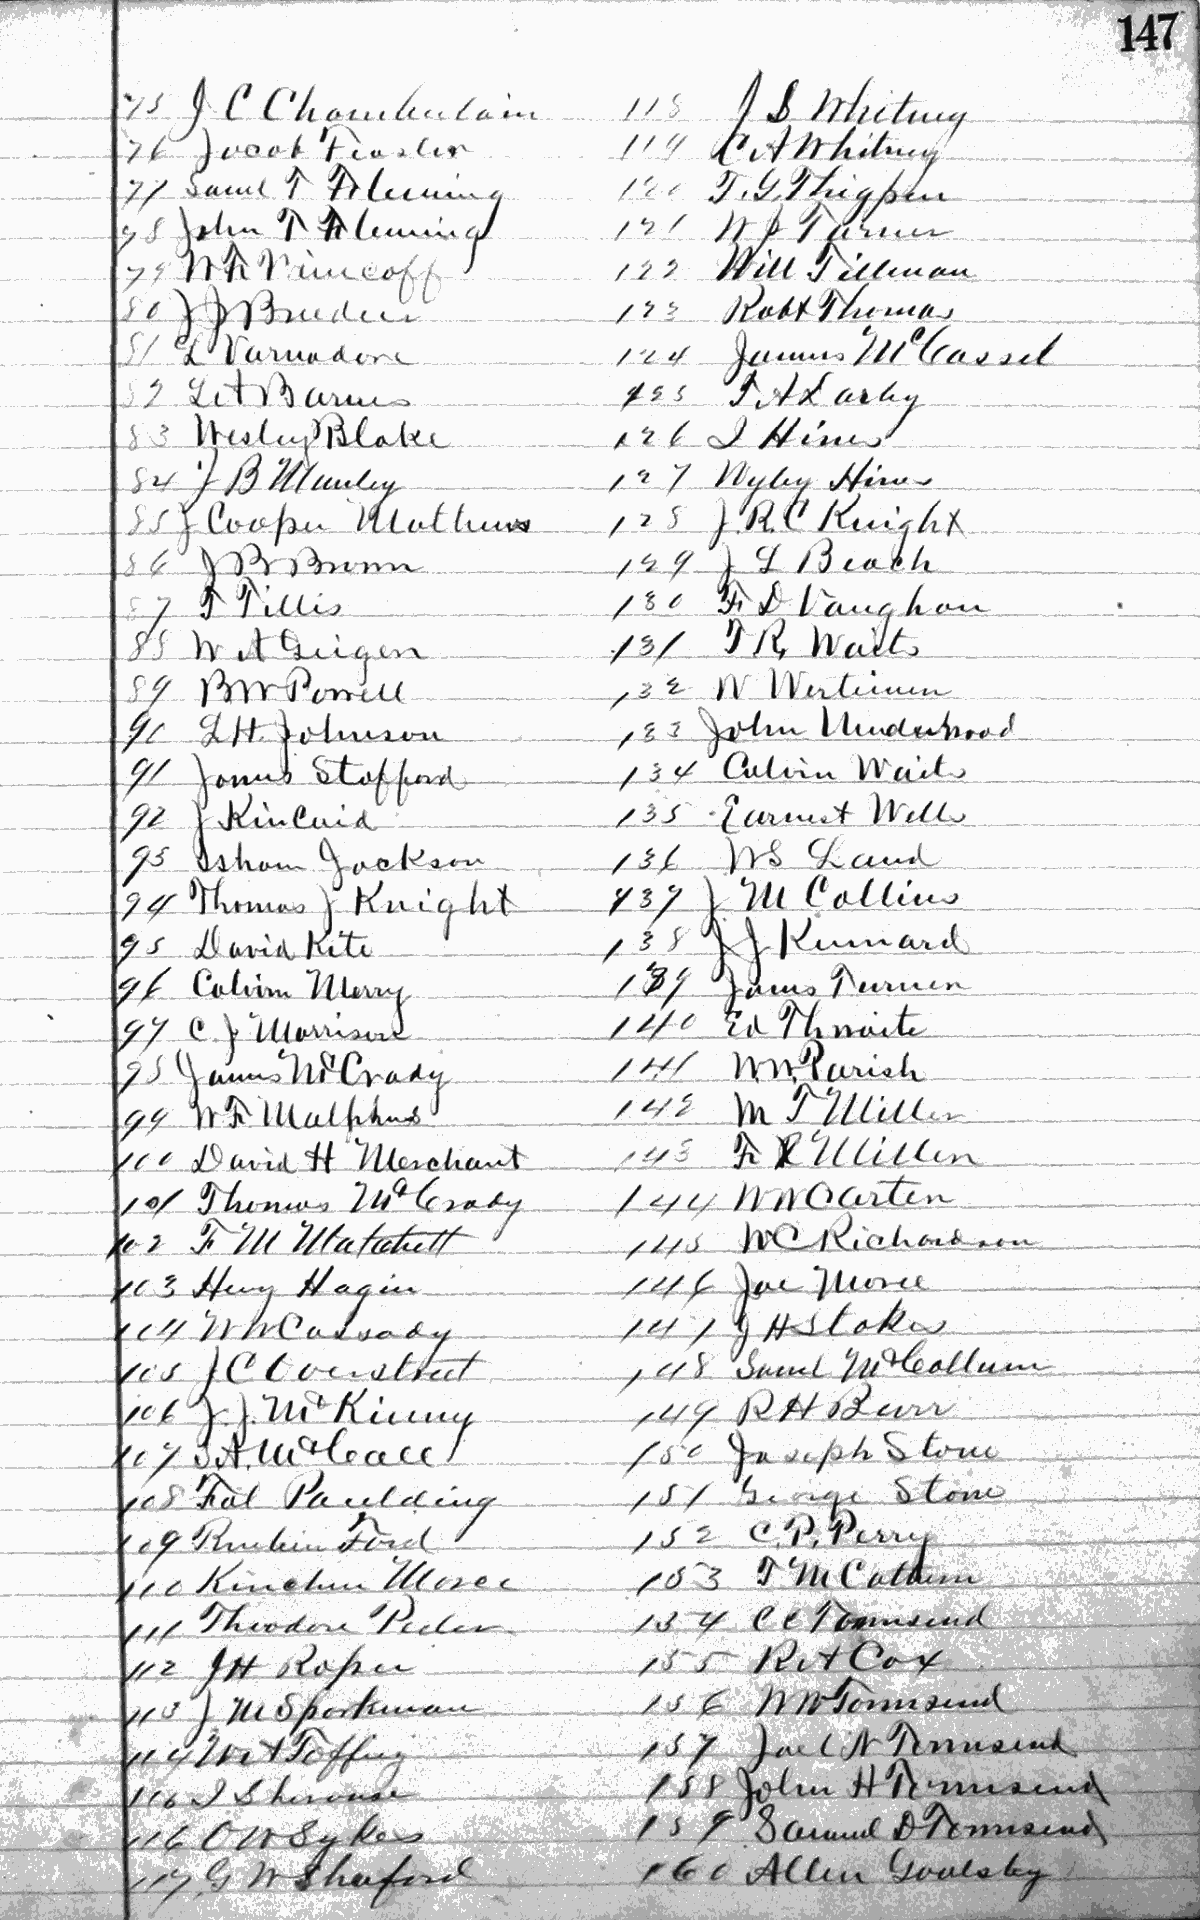 147
75 J C Chamberlain
76 Jacob Feaster
77 Saml T Fleming
78 John T Fleming
79 W F
80 J J
81 L Varnadore
82 L A Barnes
83 Wesley Blake
84 J B Manley
85 J Cooper Mathews
86 J B Brown
87 T Tillis
88 W A Geiger
89 B W Powell
90 L H Johnson
91 James Stafford
92 J Kincaid
93 Isham Jackson
94 Thomas J Knight
95 David Kite
96 Calvin Merry
97 C J Morrison
98 James McCrady
99 W F Malphus
100 David H Merchant
101 Thomas McCrady
102 F M Matchett
103 Heny Hagin
104 W W Cassady
105 J C Overstreet
106 J. J. McKinny
107 McCall
108 Paulding
109 Ford
110 Kinchen
111 Theodore
112 J H Roper
113 J M Sparkman
114
116 I Sherouse
116 O W Sykes
117 G W
118 J S Whitney
119 C A Whitney
120 T. G. Thigpen
121 Turner
122 Will Tillman
123 Robt Thomas
124 James McCassel
125 T A
126 I Hines
127 Wyley Hines
128 J. R. C Knight
129 J L Beach
130 F D Vaughan
131 T R, Waits
132 W
133 John Underwood
134 Calvin Waits
135 Earnest Wells
136 W S Land
137 J M Collins
138 J J Kinnard
139 James Turner
140 Ed Thwaite
141 W. W. Parish
142 M T Miller
143 F R Miller
144 W W Carter
145 W C Richardson
146 Joe
147 J H Stokes
148 Saml McCollum
149 R H Burr
150 Joseph Stone
151 George Stone
152 C. P. Perry
153 T M
154 C C Townsend
155 R A Cox
156 W W Townsend
157 Joel N Townsend
158 John H Townsend
159 Samuel D Townsend
160 Allen Goolsby